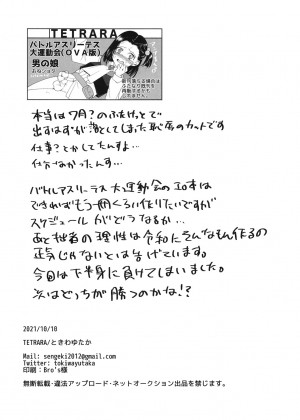 TETRARA
バトルアスリーテス
大運動会(OVA版)
男の娘
おねショタ
本当は7月?のふたけっとで
出すはずが落としてしまった恥辱のカットです
仕事?とかしてたんすよ…
仕方なかったんす…
バトルアスリーテス大運動会のエロ本は
できればもう一冊くらい作りたいですが
スケジュールがどうなるか…
あと拙者の理性は令和にそんなもん作るの
正気じゃないとは告げています。
今回は下半身に負けてしまいました。
次はどっちが勝つのかな!?
2021/10/10
TETRARA/ときわゆたか
Mail: sengeki2012@gmail.com
Twitter: tokiwayutaka
印刷:Bro's様
無断転載・違法アップロード・ネットオークション出品を禁じます。